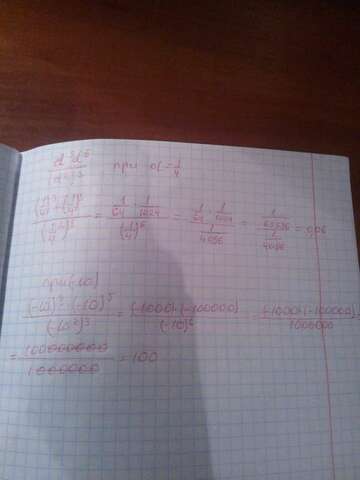 при a=1/4
(1/4)³·(1/4)⁵/((1/4)²)³ = 1/64·1/1024/(1/4)⁶ = 1/64·1/1024/1/4096 = 1/65,536/1/4096 = 0,06
при(-10)
(-10)³·(-10)⁵/(-10²)³ = (-1000)·(-100000)/(-10)⁶ = (-1000)·(-100000)/1000000
= 100000000/1000000 = 100